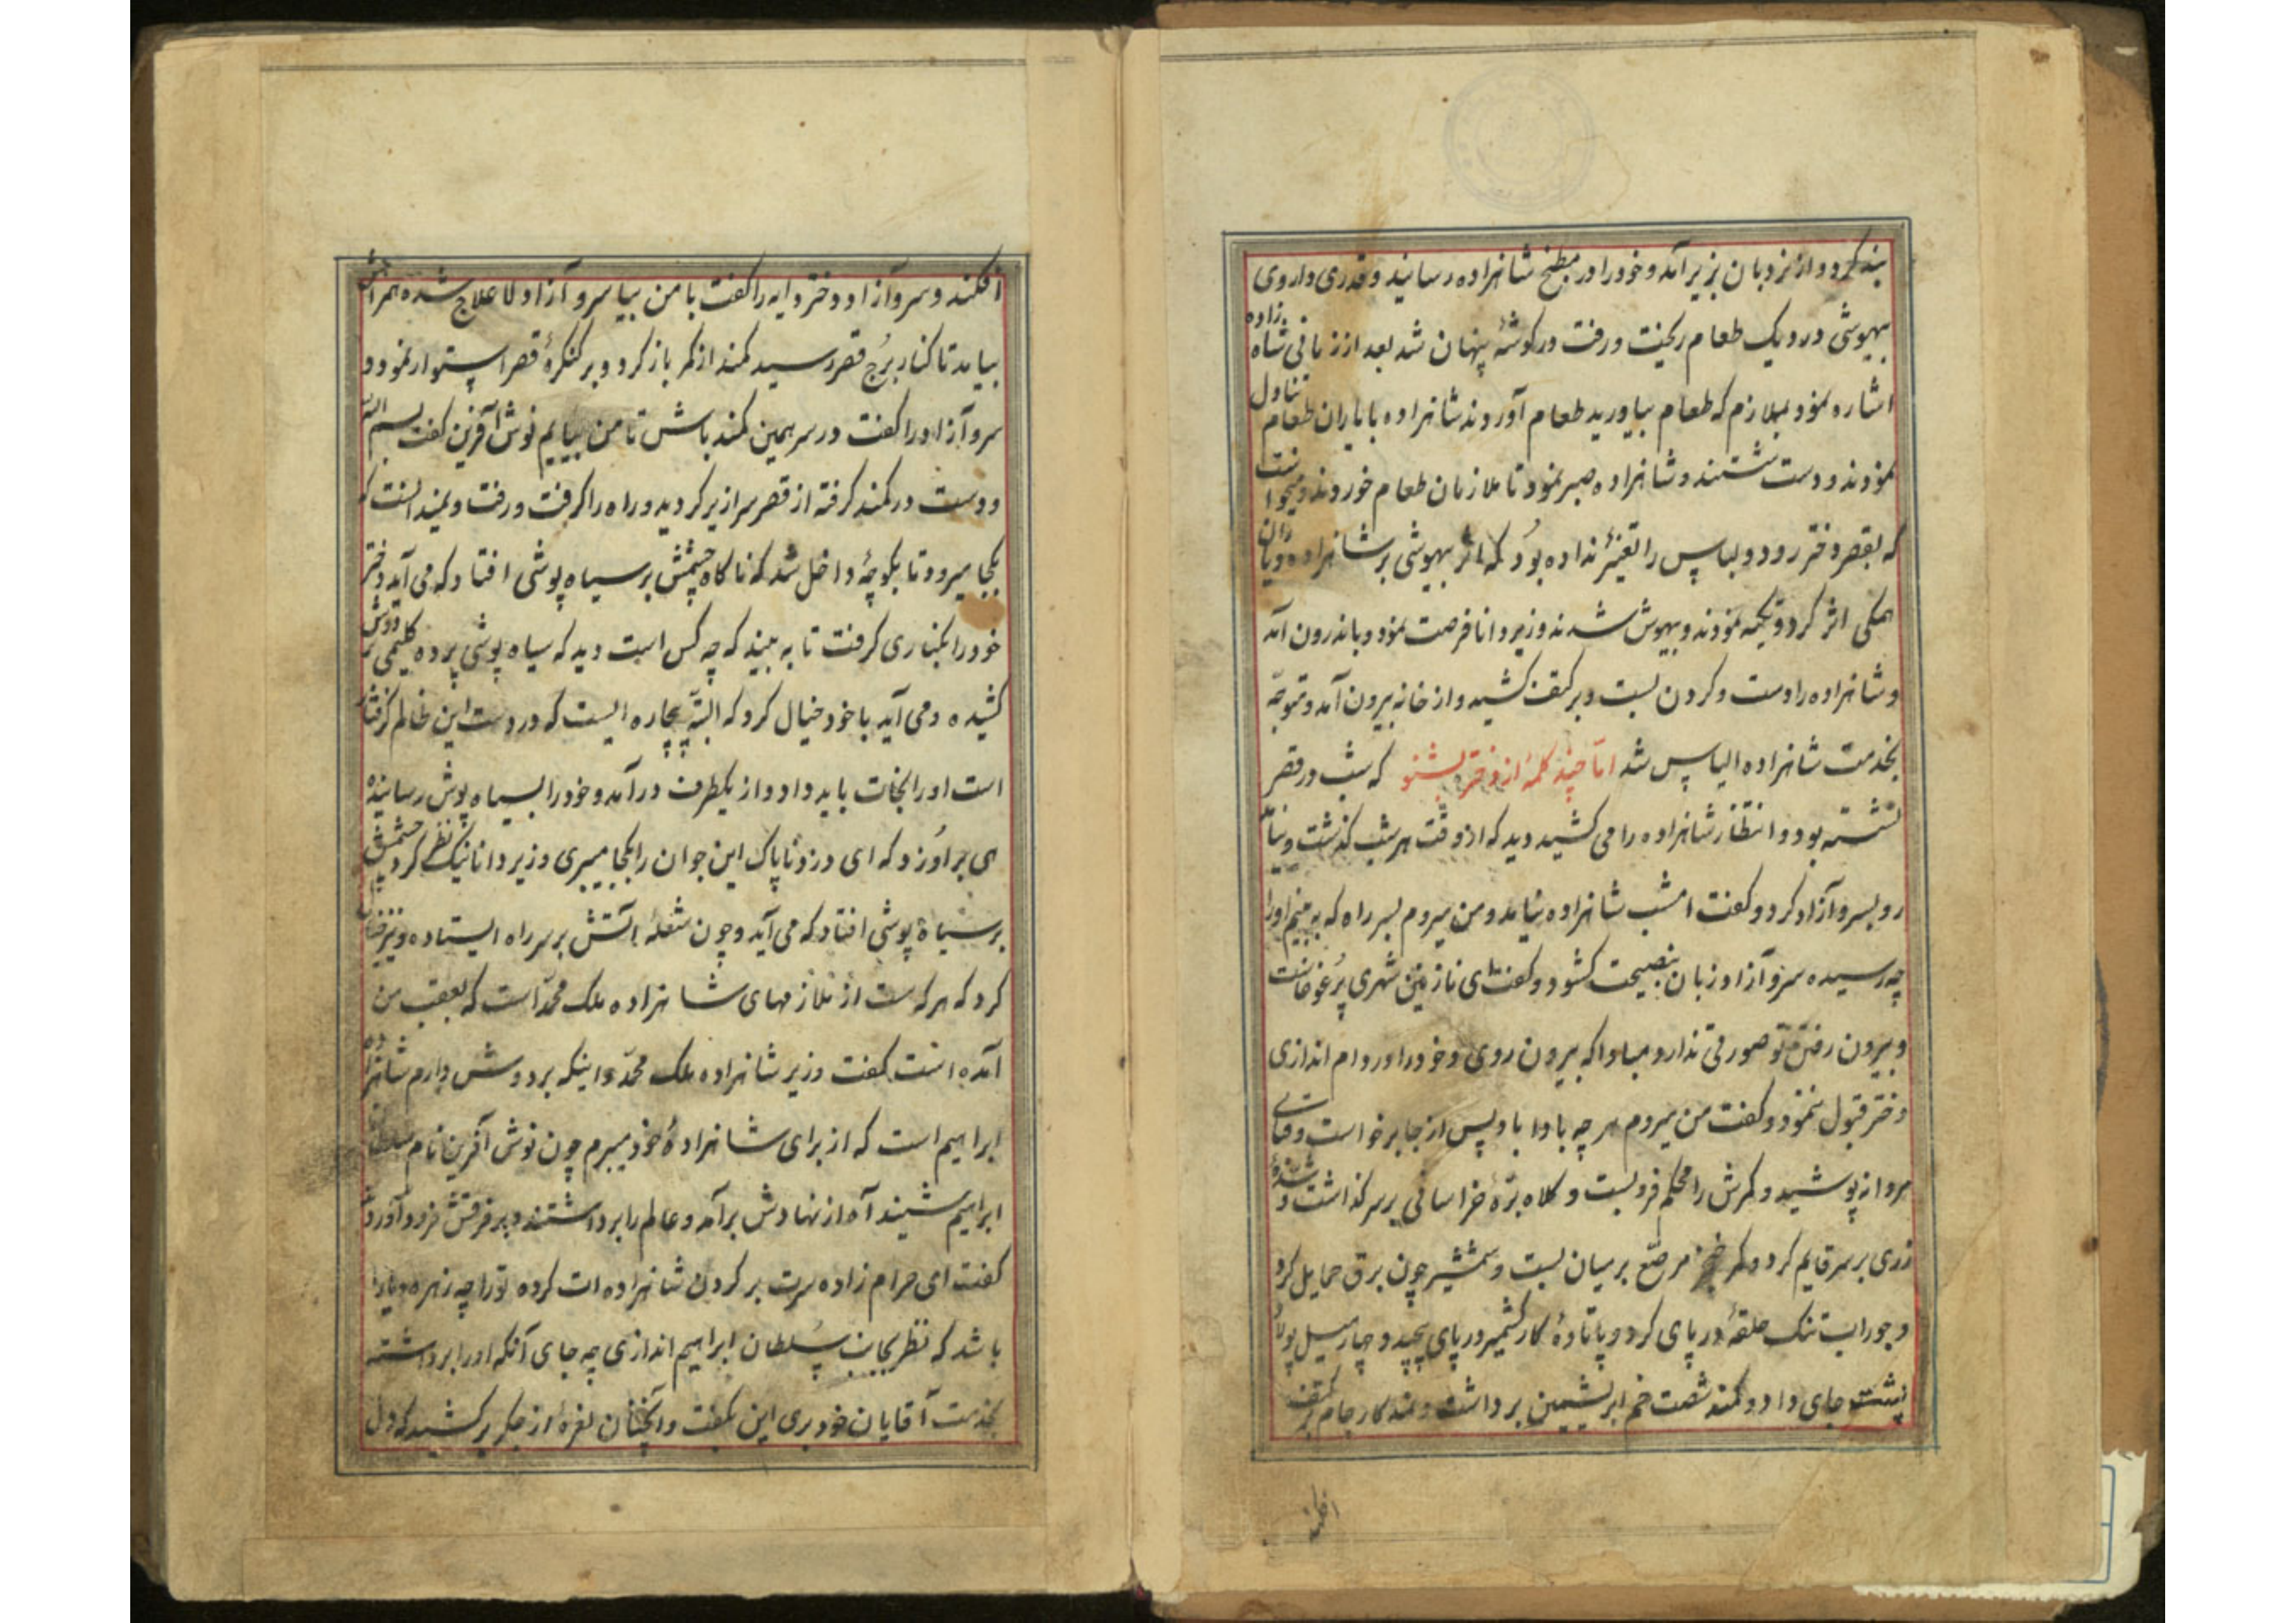 بند کرد و از نردبان بزیر آمد و خود را در مطبخ شاهزاده رسانید و قدری داروی
بیهوشی در دیک طعام ریخت و رفت در کوشهٔ پنهان شد بعد از زمانی شاه زاده
اشاره نمود بملازم که طعام بیاورید طعام آوردند شاهزاده با یاران طعام تناول
نمودند و دست شستند و شاهزاده صبر نمود تا ملازمان طعام خوردند و میخواست
که بقصر دختر رود و لباس را تغییر نداده بود که اثر بیهوشی بر شاهزاده و یاران
همکی اثر کرد و تکیه نمودند و بیهوش شدند وزیر دانا فرصت نمود و باندرون آمد
و شاهزاده را دست و کردن بست و بر کتف کشید و از خانه بیرون آمد و متوجه
بخدمت شاهزاده الیاس شد اما چند کلمهٔ از دختر بشنو که شب در قصر
نشسته بود و انتظار شاهزاده را می کشید دید که از وقت هر شب کذشت و نیامد
رو بسرو آزاد کرد و کفت امشب شاهزاده نیامد و من میروم بسر راه که به بینم او را
چه رسیده سرو آزاد زبان بنصیحت کشود و کفت ای نازنین شهری پرغوغاست
و بیرون رفتن تو صورتی ندارد مبادا که بیرون روی و خود را در دام اندازی
دختر قبول ننمود و کفت من میروم هر چه بادا باد پس از جا برخواست و قبای
مردانه پوشید و کمرش را محکم فرو بست و کلاه برهٔ خراسانی بر سر کذاشت و
زری بر سر قایم کرد و کمر خنجر مرصع بر میان بست و شمشیر چون برق حمایل کرد
و جوراب تنک حلقهٔ در پای کرد و پاتادهٔ کار کشمیر در پای پیچید و چهار میل پولاد
پشت جای داد و کمند شصت خم ابریشمین برداشت و
افکند
افکند و سرو آزاد و دختر دایه را کفت با من بیا سرو آزاد لاعلاج شده همراهش
بیامد تا کنار برج قصر رسید کمند از کمر باز کرد و بر کنکرهٔ قصر استوار نمود و
سرو آزاد را کفت در سر همین کمند باش تا من بیایم نوش آفرین کفت بسم الله
و دست در کمند کرفته از قصر سرازیر کردید و راه را کرفت و رفت و نمیدانست که
بکجا میرود تا بکوچهٔ داخل شد که ناکاه چشمش بر سیاه پوشی افتاد که می آید دختر
خود را بکناری کرفت تا به بیند که چه کس است دید که سیاه پوشی پرده کلیمی بر دوش
کشیده و می آید با خود خیال کرد که البته بیچاره ایست که در دست این ظالم کرفتار
است او را نجات باید داد و از یکطرف در آمد و خود را بسیاه پوش رسانیده
هی بر او زد که ای دزد ناپاک این جوان را بکجا میبری وزیر دانا نیک نظر کرد چشمش
بر سیاه پوشی افتاد که می آید و چون شعلهٔ آتش بر سر راه ایستاده وزیر خیال
کرد که هر که هست از ملازمهای شاهزاده ملک محمد است که بعقب من
آمده است کفت وزیر شاهزاده ملک محمد و اینکه بر دوش دارم شاهزاده
ابراهیم است که از برای شاهزادهٔ خود میبرم چون نوش آفرین نام سلطان
ابراهیم شنید آه از نهادش برآمد و عالم را برداشتند و بر فرقش فرود آوردند
کفت ای حرام زاده سرت بر کردن شاهزاده ات کرده تو را چه زهره و یارا
باشد که نظر بجانب سلطان ابراهیم اندازی چه جای آنکه او را برداشته
بخدمت آقایان خود بری این بکفت و آنچنان نعرهٔ از جکر برکشید که دل